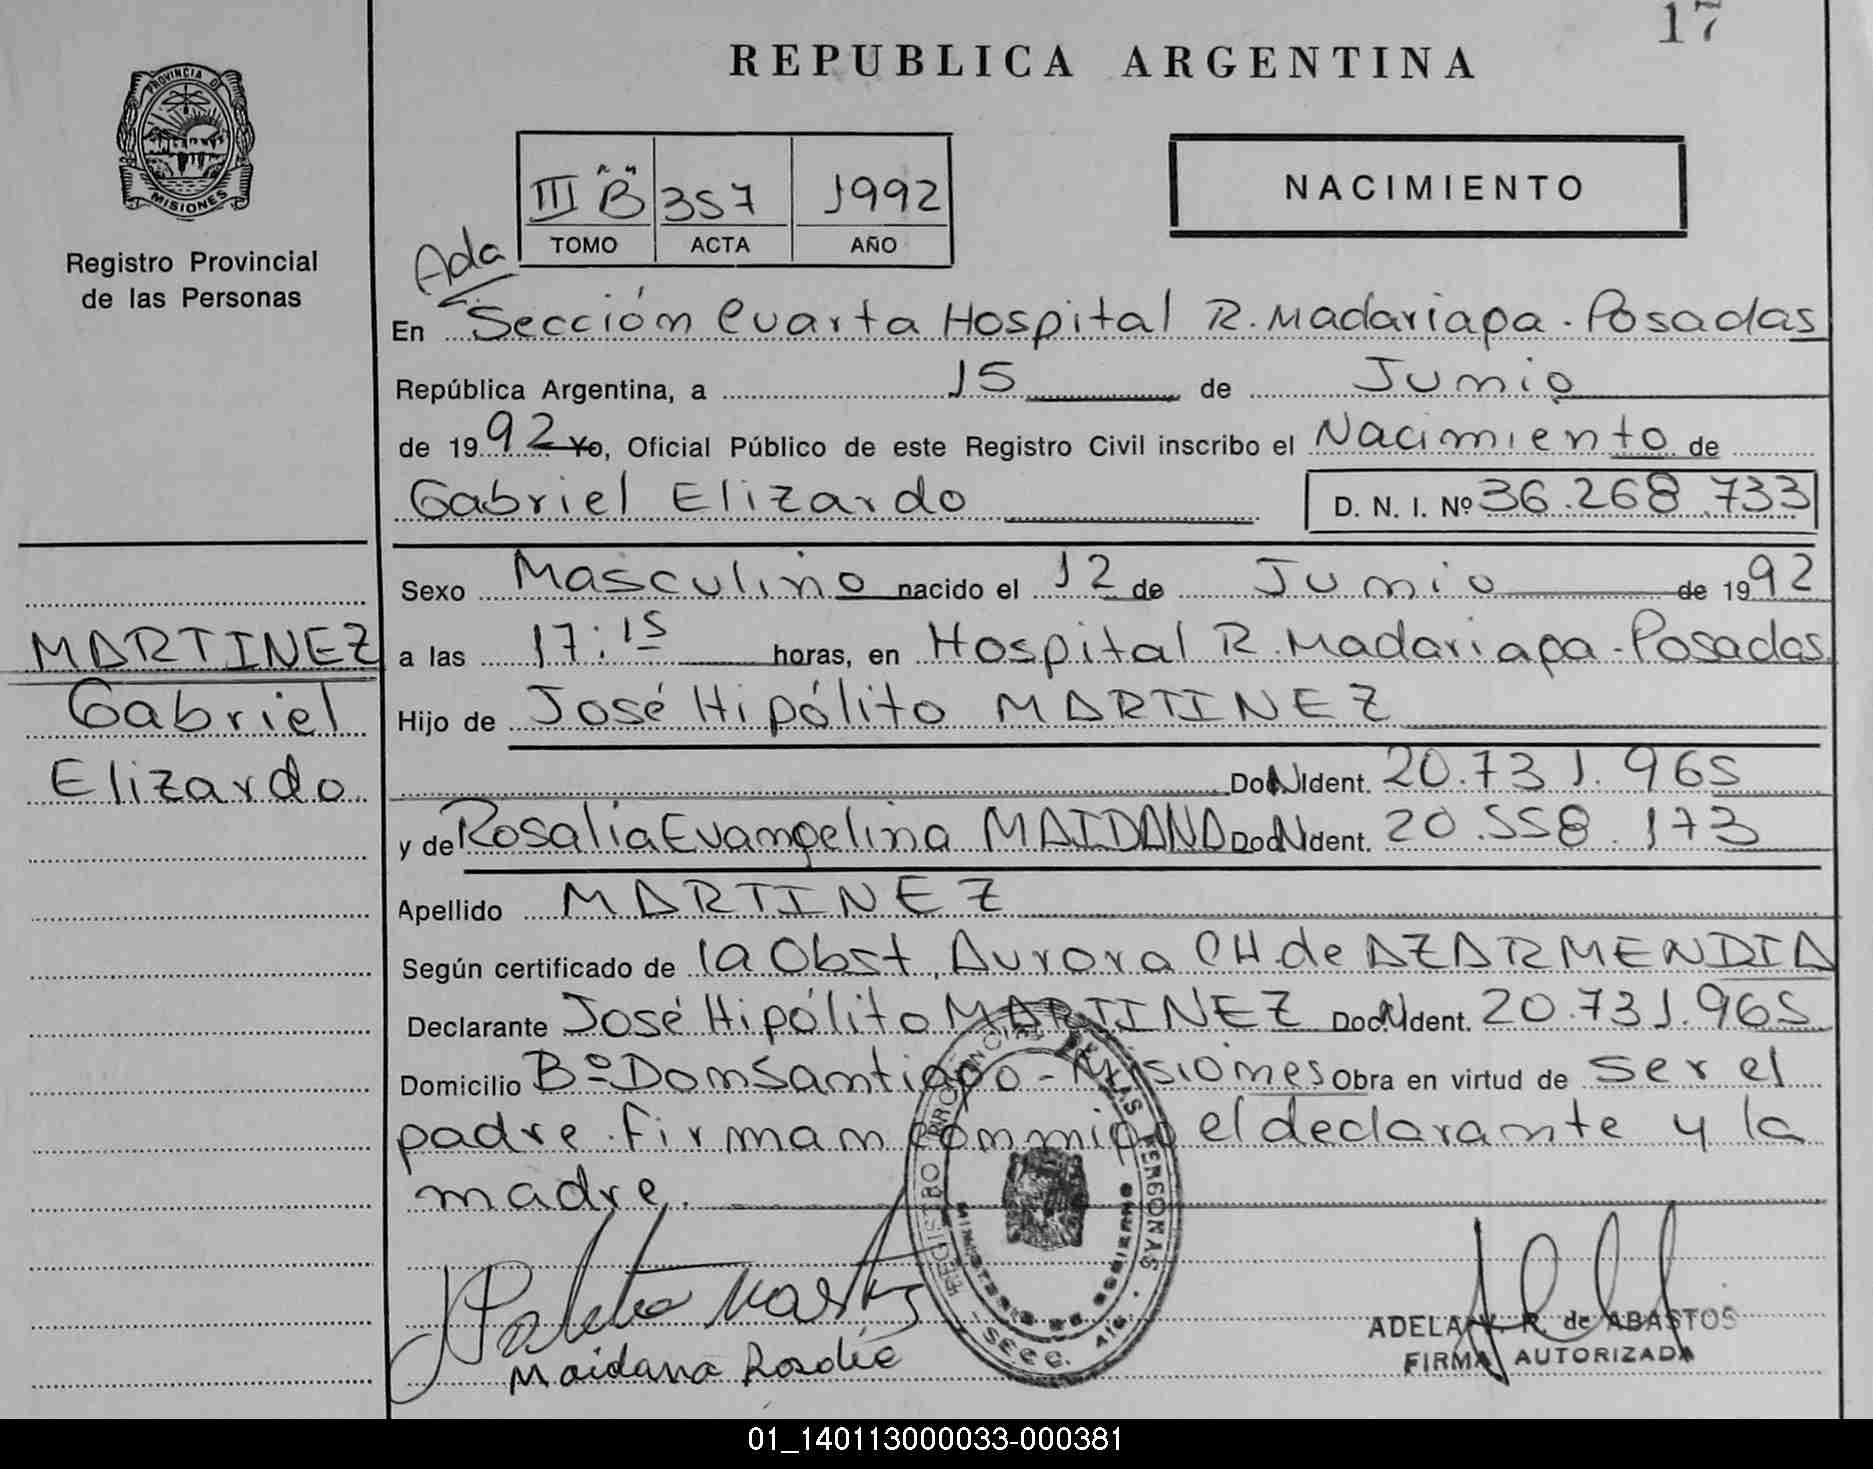 17
REPUBLICA ARGENTINA
PROVINCIA DE
MISIONES
Registro Provincial
de las Personas
III "B" 357 1992
TOMO ACTA AÑO
NACIMIENTO
Ada
En Sección Cuarta Hospital R. Madariaga - Posadas
República Argentina, a 15 de Junio
de 1992 Yo, Oficial Público de este Registro Civil inscribo el Nacimiento de
Gabriel Elizardo D. N. I. Nº 36.268.733
Sexo Masculino nacido el 12 de Junio de 1992
a las 17:15 horas, en Hospital R. Madariaga - Posadas
Hijo de José Hipólito MARTINEZ
Doc. N Ident. 20.731.965
y de Rosalia Evangelina MAIDANA Doc N Ident. 20.558.173
Apellido MARTINEZ
Según certificado de la Obst. Aurora CH de AZARMENDIA
Declarante José Hipólito MARTINEZ Doc N Ident. 20.731.965
Domicilio Bº Don Santiago - Misiones Obra en virtud de ser el
padre. Firman conmigo el declarante y la
madre.
MARTINEZ
Gabriel
Elizardo
REGISTRO PROVINCIAL DE LAS PERSONAS
MINISTERIO DE GOBIERNO
SECC. 4ta.
Maidana Rosalia
ADELA V. R. de ABASTOS
FIRMA AUTORIZADA
01_140113000033-000381